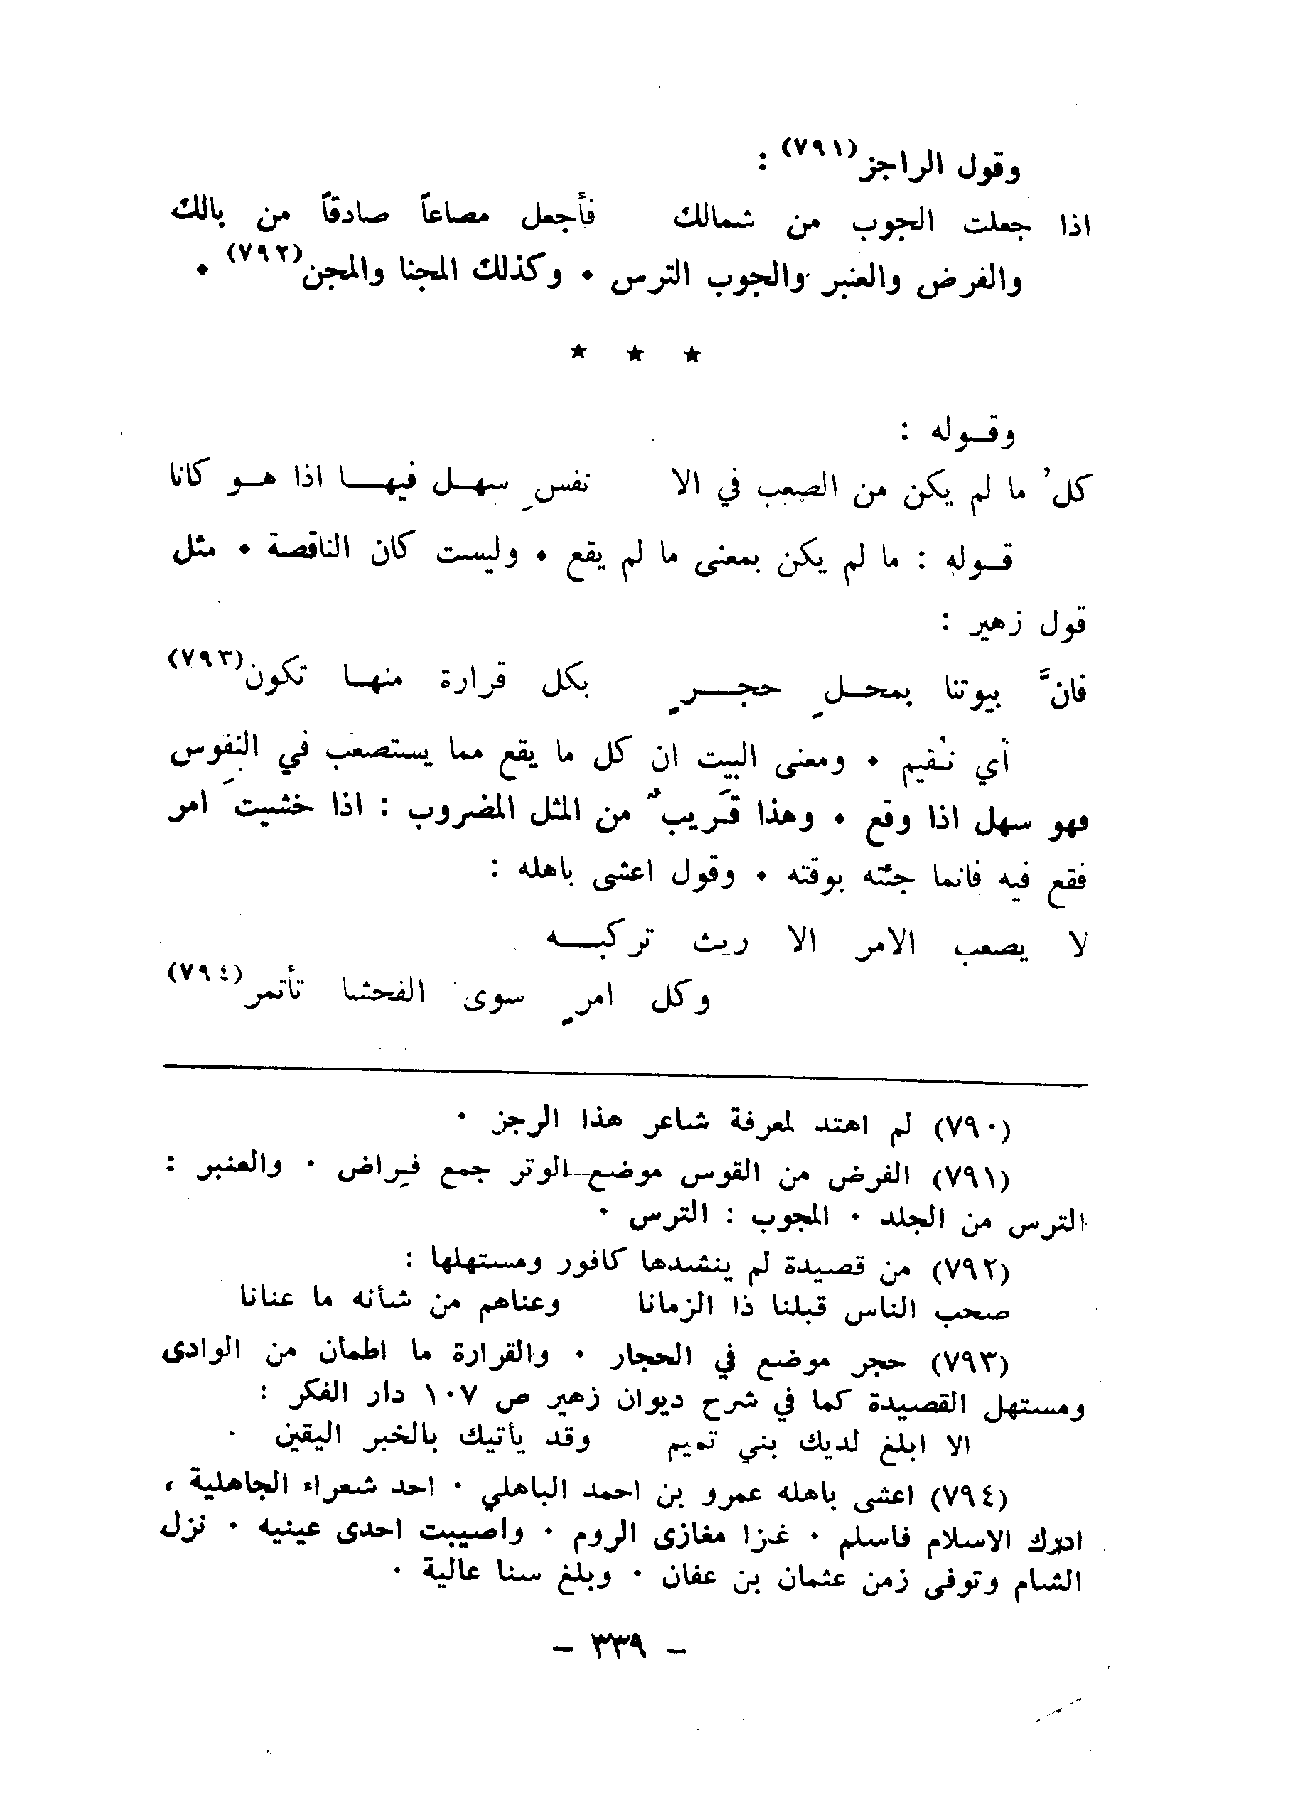 وقول الراجز(٧٩١) :
اذا جعلت الجوب من شمالك فأجعل مصاعاً صادقاً من بالك
والفرض والعنبر والجوب الترس ٠ وكذلك المجنا والمجن(٧٩٢) ٠
★ ★ ★
وقوله :
كلُ ما لم يكن من الصعب في الا نفسِ سهل فيها اذا هو كانا
قوله : ما لم يكن بمعنى ما لم يقع ٠ وليست كان الناقصة ٠ مثل
قول زهير :
فانَّ بيوتنا بمحلِ حجرٍ بكل قرارة منها تكون(٧٩٣)
أي نُقيم ٠ ومعنى البيت ان كل ما يقع مما يستصعب في النفوس
فهو سهل اذا وقع ٠ وهذا قَريبٌ من المثل المضروب : اذا خشيتَ امر
فقع فيه فانما جئته بوقته ٠ وقول اعشى باهله :
لا يصعب الامر الا ريث تركبه
وكل امرٍ سوى الفحشا تأتمر(٧٩٤)
(٧٩٠) لم اهتد لمعرفة شاعر هذا الرجز ٠
(٧٩١) الفرض من القوس موضع الوتر جمع فِراض ٠ والعنبر :
الترس من الجلد ٠ المجوب : الترس ٠
(٧٩٢) من قصيدة لم ينشدها كافور ومستهلها :
صحب الناس قبلنا ذا الزمانا وعناهم من شأنه ما عنانا
(٧٩٣) حجر موضع في الحجار ٠ والقرارة ما اطمأن من الوادى
ومستهل القصيدة كما في شرح ديوان زهير ص ١٠٧ دار الفكر :
الا ابلغ لديك بني تميم وقد يأتيك بالخبر اليقين ٠
(٧٩٤) اعشى باهله عمرو بن احمد الباهلي ٠ احد شعراء الجاهلية ،
ادرك الاسلام فاسلم ٠ غزا مغازى الروم ٠ واصيبت احدى عينيه ٠ نزل
الشام وتوفى زمن عثمان بن عفان ٠ وبلغ سنا عالية ٠
— ٣٣٩ —